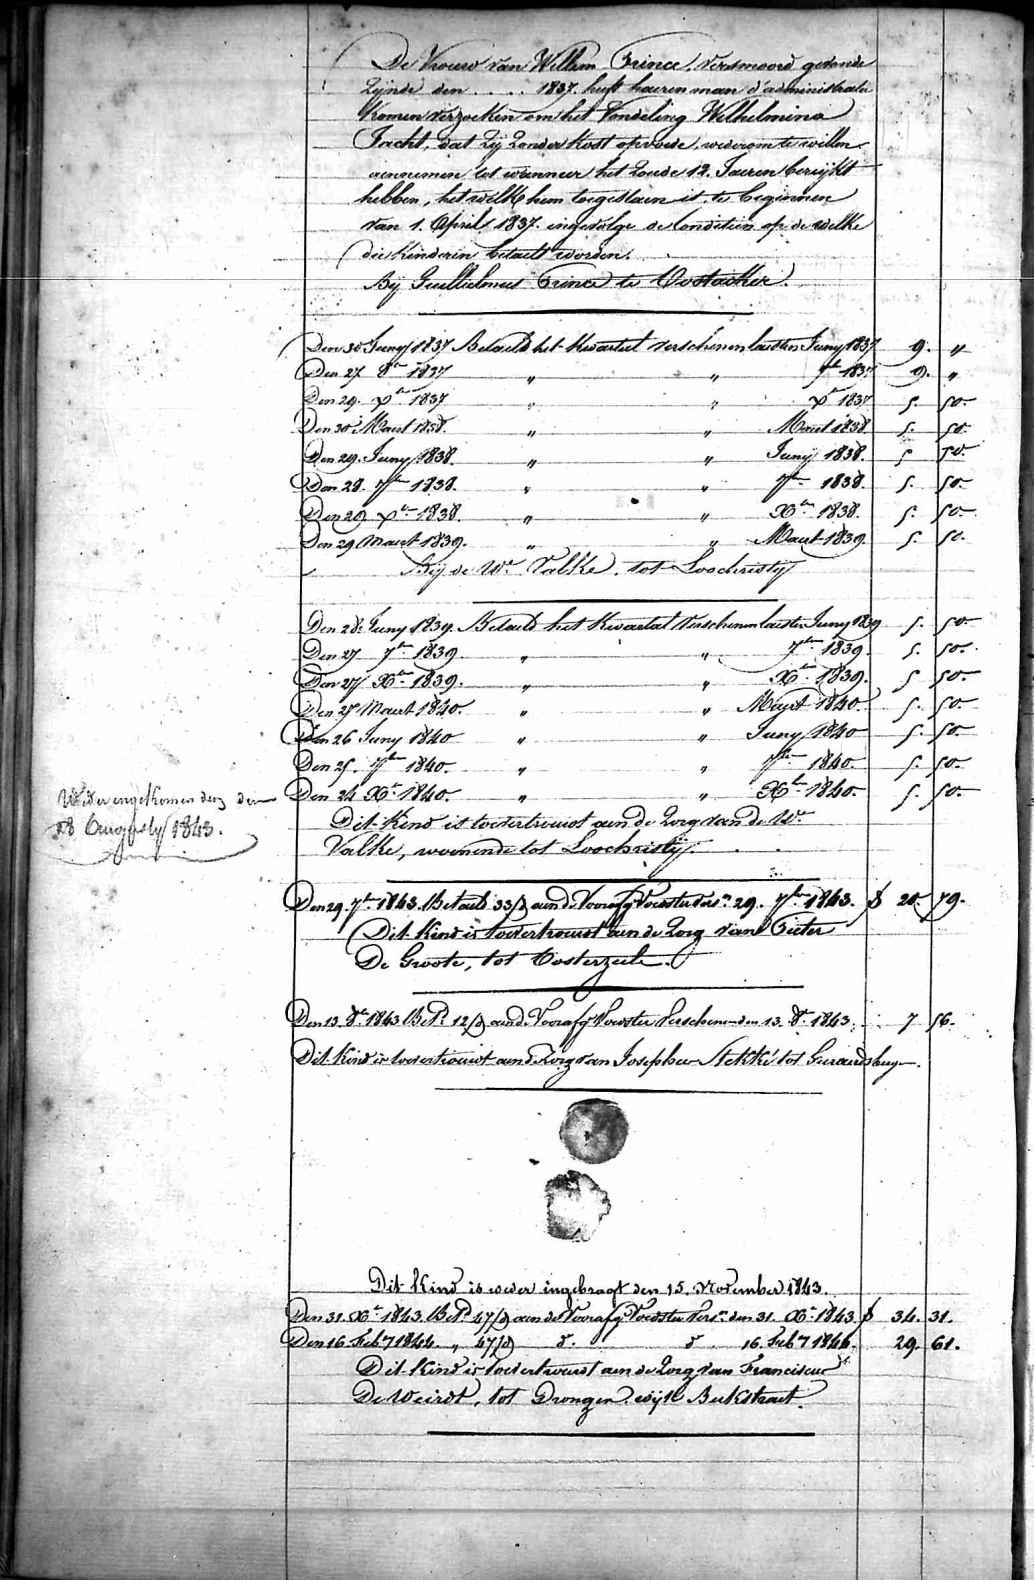 De Vrouw van Willem Prince, versmoord gevonde
Zijnde den . . . . 1837, heeft haeren man d'administratie
komen verzoeken om het Vondeling Wilhelmina
Jacht, dat Zij Zonder Kost opvoede, wederom te willen
aennemen tot wanneer het Zoude 12. Jaeren bereijkt
hebben, het welk hem toegestaen is, te beginnen
van 1. April 1837. ingevolge de Conditien op de welke
die Kinderen betaelt worden.
Bij Guillielmus Prince te Oostacker.
Den 30 Juny 1837 Betaeld het Kwartael verschenen laesten Juny 1837 9. "
Den 27 8re 1837 " " 7bre 1837 9. "
Den 29. Xre 1837 " " Xre 1837 5. 50.
Den 30 Maert 1838. " " Maert 1838 5. 50.
Den 29. Juny 1838. " " Junij 1838. 5 50.
Den 28. 7bre 1838. " " 7bre 1838. 5. 50.
Den 29 Xre 1838. " " Xbre 1838. 5. 50.
Den 29 Maert 1839. " " Maert 1839 5. 50.
Bij de We Valke, tot Loochristij
Den 28. Juny 1839. Betaeld het Kwartael Verschenen laesten Juny 1839 5. 50.
Den 27 7bre 1839 " " 7bre 1839. 5. 50.
Den 27 Xbre 1839. " " Xbre 1839. 5 50.
Den 27 Maert 1840. " " Meert 1840. 5. 50.
Den 26 Juny 1840 " " Juny 1840 5. 50.
Den 25. 7bre 1840. " " 7bre 1840. 5. 50.
Den 24 Xre 1840. " " Xbre 1840. 5. 50.
Dit Kind is toevertrouwt aen de Zorg van de We
Valke, woonende tot Loochristij.
Weder ingekomen den
28 Augusty 1843.
Den 29. 7bre 1843. Betaeld 33 aen de Voorafg Voedster Vers. 29. 7bre 1843. 20 79.
Dit Kind is toevertrouwt aen de Zorg van Pieter
De Groote, tot Oosterzeele.
Den 13. 8re 1843 Betd 12 aen de Voorafg Voedster Verschenen den 13. 8re 1843. 7 56.
Dit Kind is toevertrouwt aen de Zorg van Josephus Stekké tot Geeraerdsbergen.
Dit Kind is weder ingebragt den 15. November 1843.
Den 31. Xre 1843. Betd 47 aen de Voorafg Voedster Vers. den 31. Xre 1843. 34. 31.
Den 16 Feby 1844. " 47 do. do 16. Feby 1844. 29. 61.
Dit Kind is toevertrouwt aen de Zorg van Franciscus
De Weirdt, tot Drongen wijk Beekstraet.